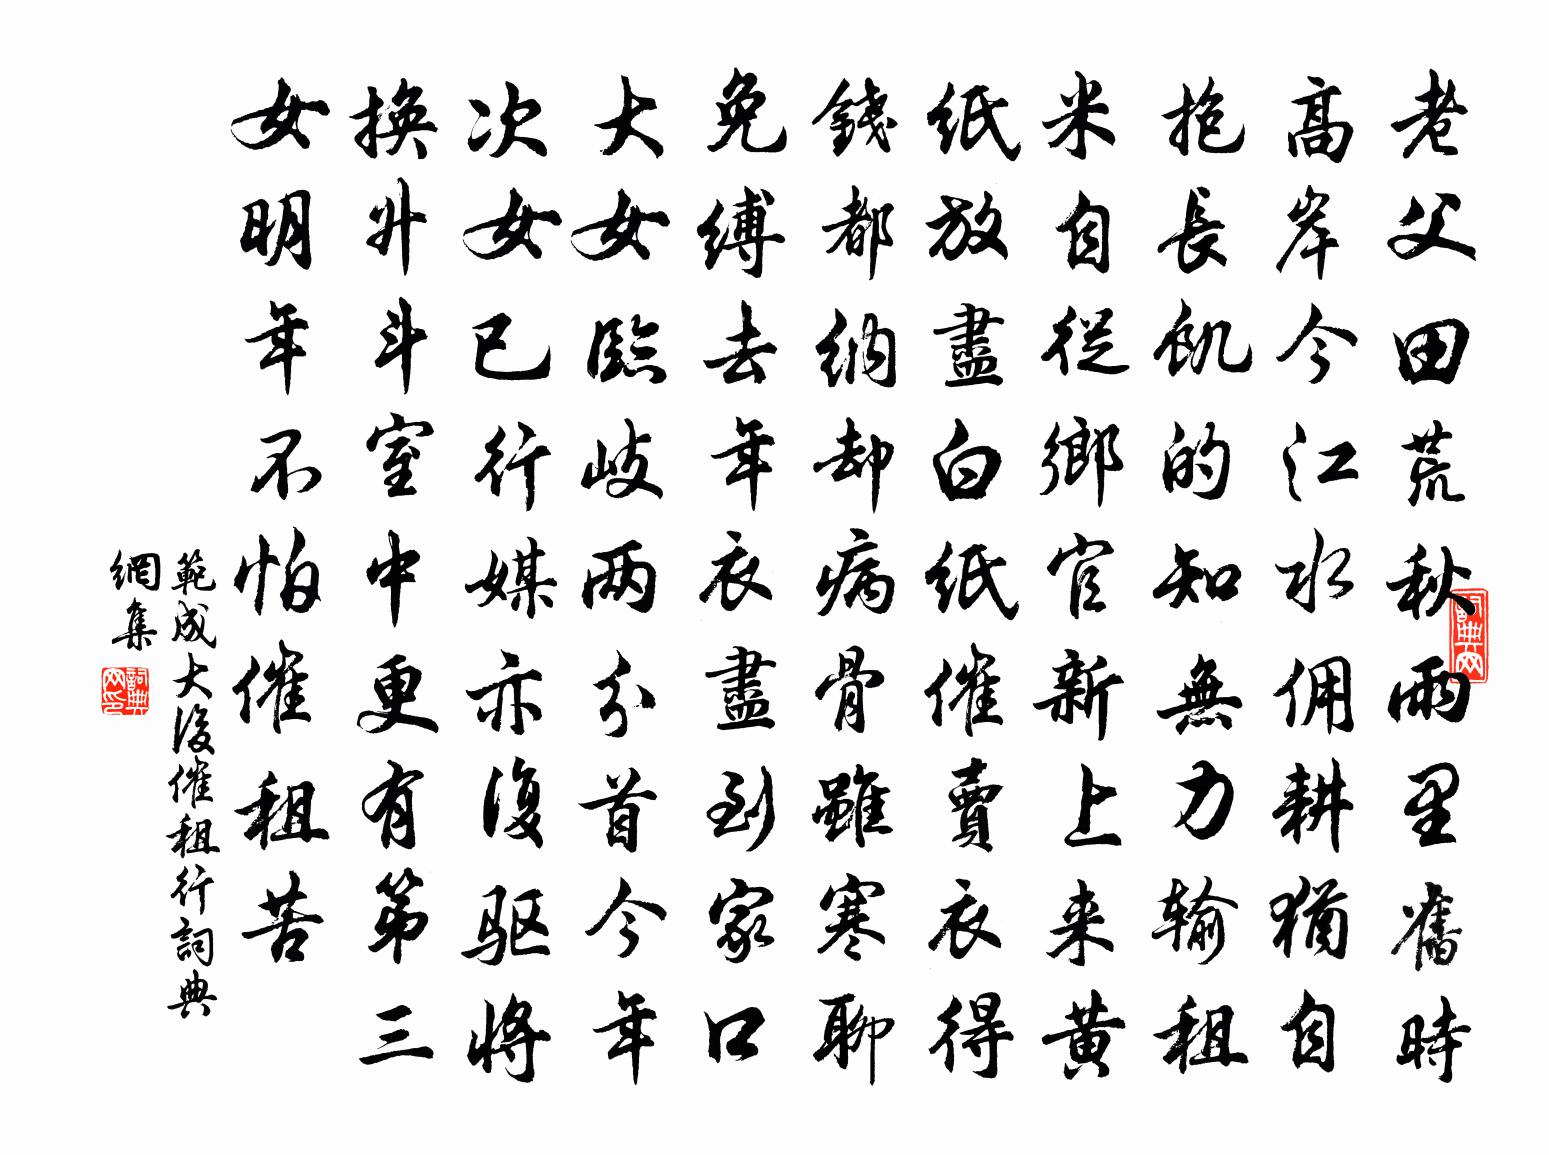 老父田荒秋雨里舊時
高岸今江水佣耕猶自
抱長飢的知無力输租
米自從鄉官新上来黄
紙放盡白紙催賣衣得
錢都納却病骨雖寒聊
免縛去年衣盡到家口
大女臨岐两分首今年
次女已行媒亦復驱將
換升斗室中更有第三
女明年不怕催租苦
範成大後催租行詞典
網集
詞典网
詞典网印